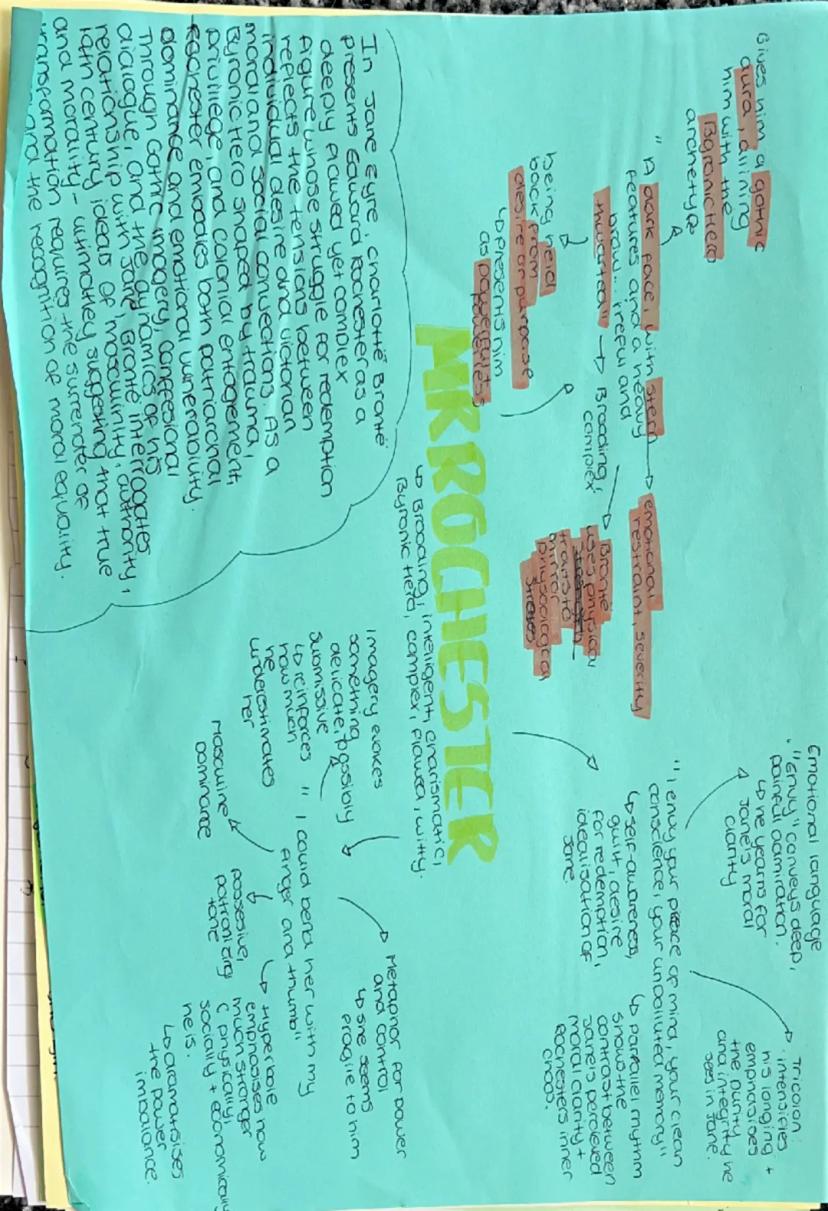 MR ROCHESTER
↳ Brooding, intelligent, charismatic,
Byronic Hero, complex, flawed, witty.
Gives him a gothic
aura, alining
him with the
Byronic Hero
archetype
" A dark face, with stern
features and a heavy
brow... ireful and
thwarted"
→ emotional
restraint, severity
→ Brooding,
complex
Bronte
uses physical
traits to
mirror
stresses
being held
back from
desire or purpose
↳ presents him
as powerful +
powerless
Emotional language
"Envy" conveys deep,
painful admiration.
↳ he yearns for
Jane's moral
clarity
"I envy your peace of mind, your clean
conscience, your unpolluted memory"
↳ self-awareness,
guilt, desire
for redemption,
idealisation of
Jane
↳ parallel rhythm
shows the
contrast between
Jane's percieved
moral clarity +
Rochesters inner
chaos.
Tricolon:
intensifies
his longing +
emphasises
the purity
and integrity he
sees in Jane.
Imagery evokes
something
delicate, possibly
submissive
↳ reinforces
how much
he
underestimates
her
" I could bend her with my
finger and thumb"
Metaphor for power
and control
↳ she seems
fragile to him
Masculine
dominance
possesive,
patronizing
tone
↳ Hyperbole
emphasises how
much stronger
( physically,
socially + economically
he is.
↳ dramatises
the power
imbalance.
In Jane Eyre, Charlotte Brontë
presents Edward Rochester as a
deeply flawed yet complex
figure whose struggle for redemption
reflects the tensions between
individual desire and victorian
moral and social convections. As a
Byronic Hero shaped by trauma,
privilege and colonial entagement,
Rochester embodies both patriarchal
dominance and emotional vulnerability.
Through Gothic imagery, confessional
dialogue, and the dynamics of his
relationship with Jane, Brontë interrogates
19th century ideals of masculinity, authority,
and morality - ultimatley suggesting that true
transformation requires the surrender of
and the recognition of moral equality.